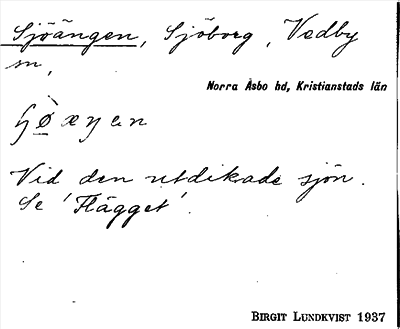 Sjöängen, Sjöborg, Vedby
sn,
Norra Åsbo hd, Kristianstads län
Vid den utdikade sjön.
Se 'Flägget'.
BIRGIT LUNDKVIST 1937